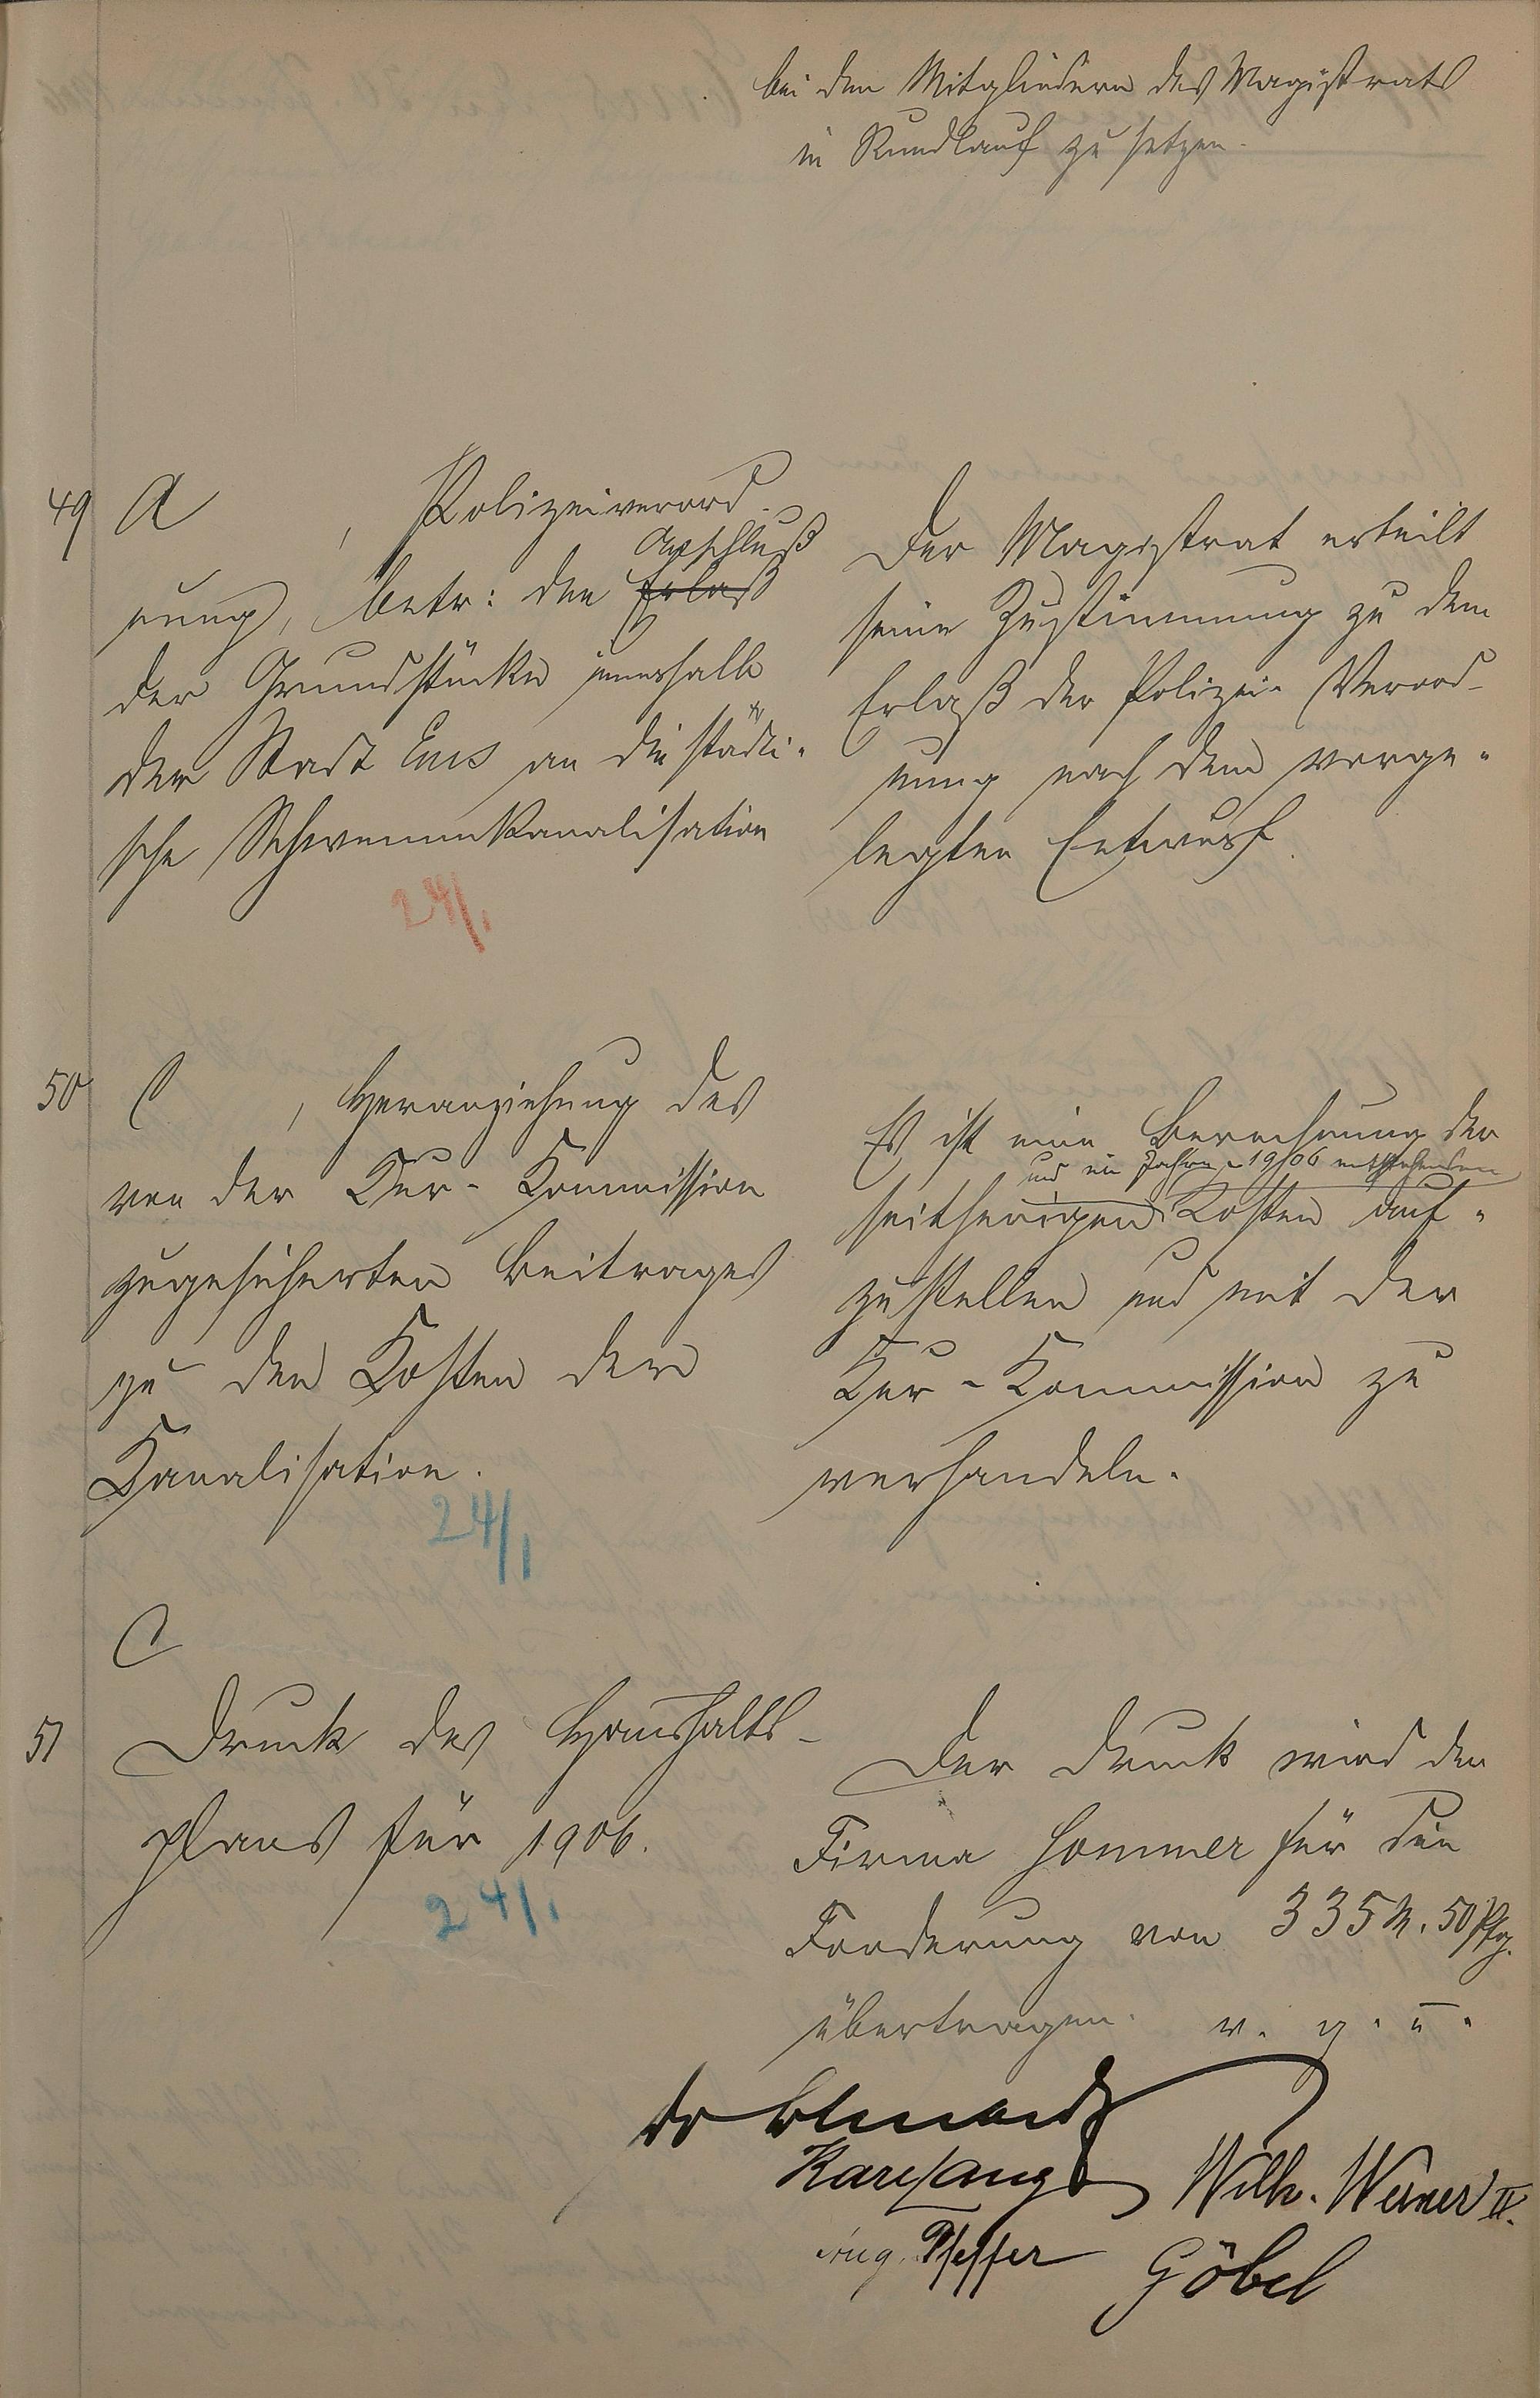 bei den Mitgliedern des Magistrats
in Rundlauf zu setzen.
49 A , Polizeiverord-
Anschluß
nung, betr: den Erlaß
der Grundstücke innerhalb
der Stadt Ems an die städti-
sche Schwemmkanalisation
24/1
Der Magistrat erteilt
seine Zustimmung zu dem
Erlaß der Polizei-Verord-
nung nach dem vorge-
legten Entwurf.
50 C , Heranziehung des
von der Kur-Kommission
zugesicherten Beitrages
zu den Kosten der
Kanalisation.
24/1
Es ist eine Berechnung der
und im Jahre 1906 entstehenden
seitherigen Kosten auf-
zustellen und mit der
Kur-Kommission zu
verhandeln.
C
51 Druck des Haushalts-
plans für 1906.
24/1
Der Druck wird der
Firma Sommer für die
Forderung von 335 M. 50 Pfg.
übertragen. v. g. u.
Dr
Karl Lang Wilh. Werner II.
Aug. Pfeffer Göbel